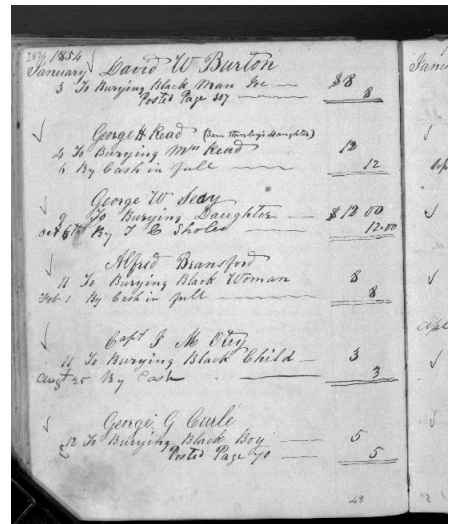 1854
January David W Burton
3 To Burying Black Man $8
Posted Page 307 8
George H. Read (Sam Stanley's Daughter)
4 To Burying Mrs Read 12
6 By Cash in full 12
George W Seay
9 To Burying Daughter $12 00
Oct 6th By T C Sholes 12.00
Alfred Bransford
11 To Burying Black Woman 8
Feb 1 By Cash in full 8
Capt J M Otey
11 To Burying Black Child 3
Augt 25 By Cash 3
George G Curle
12 To Burying Black Boy 5
Posted Page 70 5